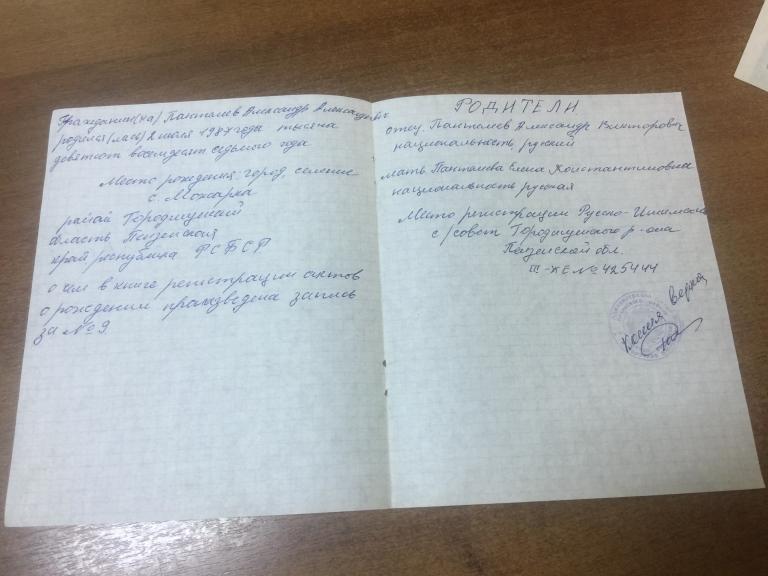 Гражданин(ка) Панталеев Александр Александрович
родился(лась) 2 июля 1987 года тысяча
девятсот восемдесят седьмого года
Место рождения: город, селение
с. Можарка
район Городищенский
область Пензенская
край/республика РСФСР
о чём в книге регистрации актов
о рождении произведена запись
за № 9.
РОДИТЕЛИ
отец. Панталеев Александр Викторович
национальность русский
мать Панталеева Елена Константиновна
национальность русская
Место регистрации Русско-Ишимский
с/совет Городищенского р-она
Пензенской обл.
III-ЖЕ № 425444
Копия верна